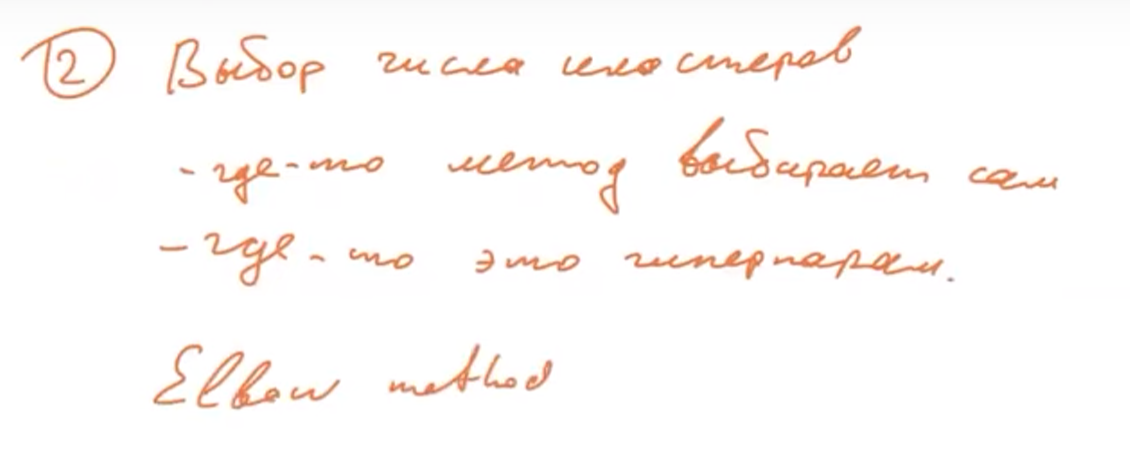 ② Выбор числа кластеров
- где-то метод выбирает сам
- где-то это гиперпарам.
Elbow method